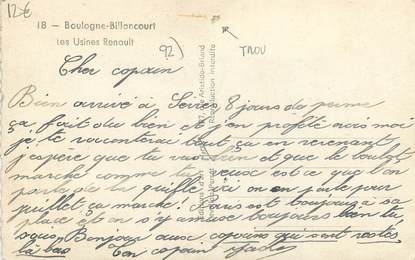 12€
18 — Boulogne-Billancourt
Les Usines Renault
92)
TROU
Cher copain
Bien arrivé à Sèvres, 8 jours de perme
ça fait du bien et j'en profite mais moi
je te raconterai tout ça en revenant
j'espère que tu vas bien et que le boulot
marche comme tu veux est ce que l'on
parle de la quille ici on en parle pour
juillet ça marche! Paris est toujours à sa
place et on s'y amuse toujours bien tu
sais, Bonjour aux copains qui sont restés
là bas Ton copain
Aristide-Briand
Reproduction interdite